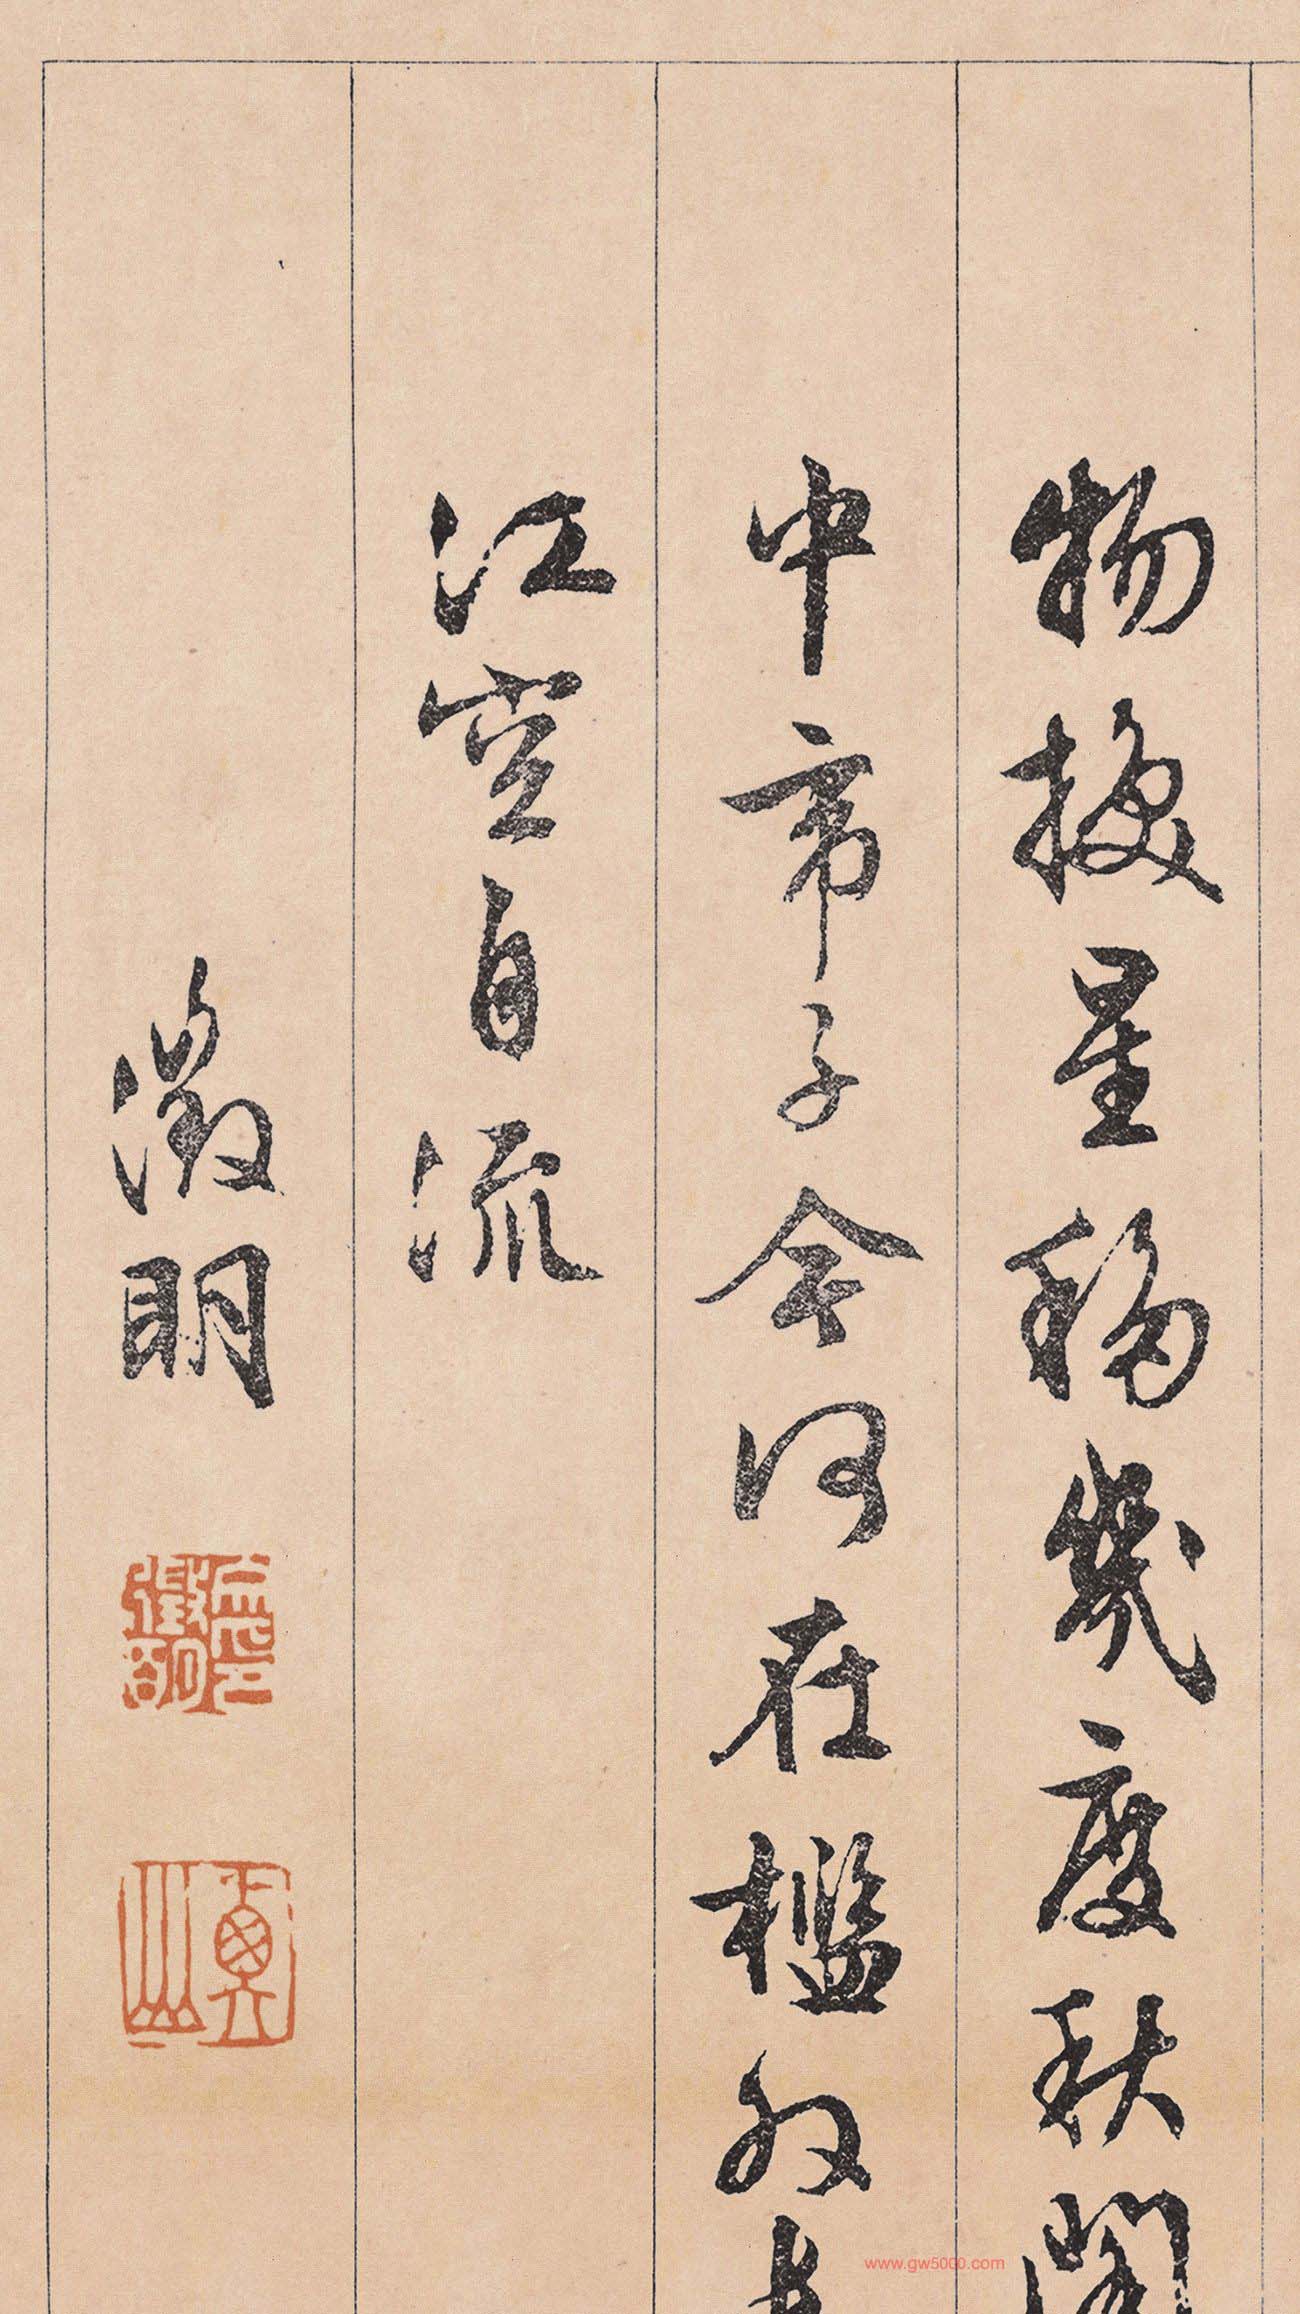 物換星移幾度秋閣
中帝子今何在檻外長
江空自流
徵明
衡山
www.gw5000.com